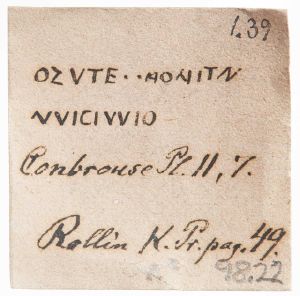 1.39
OZVTE··HOHITN
VVICIVVIO
Conbrouse Pl. 11, 7.
Rollin K. Pr. pag. 49.
98.22